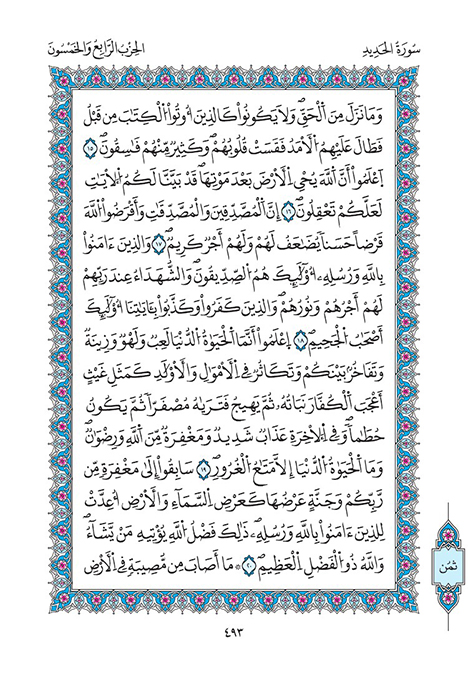 سورة الحديد
الحزب الرابع والخمسون
وَمَا نَزَلَ مِنَ ٱلْحَقِّ وَلَا يَكُونُوا۟ كَالذِينَ أُوتُوا۟ ٱلْكِتَٰبَ مِن قَبْلُ
فَطَالَ عَلَيْهِمُ ٱلْأَمَدُ فَقَسَتْ قُلُوبُهُمْ وَكَثِيرٌ مِّنْهُمْ فَٰسِقُونَ ١٥
اِ۪عْلَمُوٓا۟ أَنَّ ٱللَّهَ يُحْيِ ٱلْأَرْضَ بَعْدَ مَوْتِهَا قَدْ بَيَّنَّا لَكُمُ ٱلْأٓيَٰتِ
لَعَلَّكُمْ تَعْقِلُونَ ١٦ إِنَّ ٱلْمُصَّدِّقِينَ وَٱلْمُصَّدِّقَٰتِ وَأَقْرَضُوا۟ ٱللَّهَ
قَرْضًا حَسَنًا يُضَٰعَفُ لَهُمْ وَلَهُمْ أَجْرٌ كَرِيمٌ ١٧ وَالذِينَ ءَامَنُوا۟
بِاللَّهِ وَرُسُلِهِۦٓ أُو۟لَٰٓئِكَ هُمُ ٱلصِّدِّيقُونَ وَالشُّهَدَآءُ عِندَ رَبِّهِمْ
لَهُمْ أَجْرُهُمْ وَنُورُهُمْ وَالذِينَ كَفَرُوا۟ وَكَذَّبُوا۟ بِـَٔايَٰتِنَآ أُو۟لَٰٓئِكَ
أَصْحَٰبُ ٱلْجَحِيمِ ١٨ اِ۪عْلَمُوٓا۟ أَنَّمَا ٱلْحَيَوٰةُ ٱلدُّنْيَا لَعِبٌ وَلَهْوٌ وَزِينَةٌ
وَتَفَاخُرٌۢ بَيْنَكُمْ وَتَكَاثُرٌ فِى ٱلْأَمْوَٰلِ وَالْأَوْلَٰدِ كَمَثَلِ غَيْثٍ
أَعْجَبَ ٱلْكُفَّارَ نَبَاتُهُۥ ثُمَّ يَهِيجُ فَتَرَىٰهُ مُصْفَرًّا ثُمَّ يَكُونُ
حُطَٰمًا وَفِى ٱلْأٓخِرَةِ عَذَابٌ شَدِيدٌ وَمَغْفِرَةٌ مِّنَ ٱللَّهِ وَرِضْوَٰنٌ
وَمَا ٱلْحَيَوٰةُ ٱلدُّنْيَآ إِلَّا مَتَٰعُ ٱلْغُرُورِ ١٩ سَابِقُوٓا۟ إِلَىٰ مَغْفِرَةٍ مِّن
رَّبِّكُمْ وَجَنَّةٍ عَرْضُهَا كَعَرْضِ ٱلسَّمَآءِ وَالْأَرْضِ أُعِدَّتْ
لِلذِينَ ءَامَنُوا۟ بِاللَّهِ وَرُسُلِهِۦ ذَٰلِكَ فَضْلُ ٱللَّهِ يُؤْتِيهِ مَنْ يَّشَآءُ
وَاللَّهُ ذُو ٱلْفَضْلِ ٱلْعَظِيمِ ٢٠ ۞ مَآ أَصَابَ مِن مُّصِيبَةٍ فِى ٱلْأَرْضِ
ثمن
٤٩٣